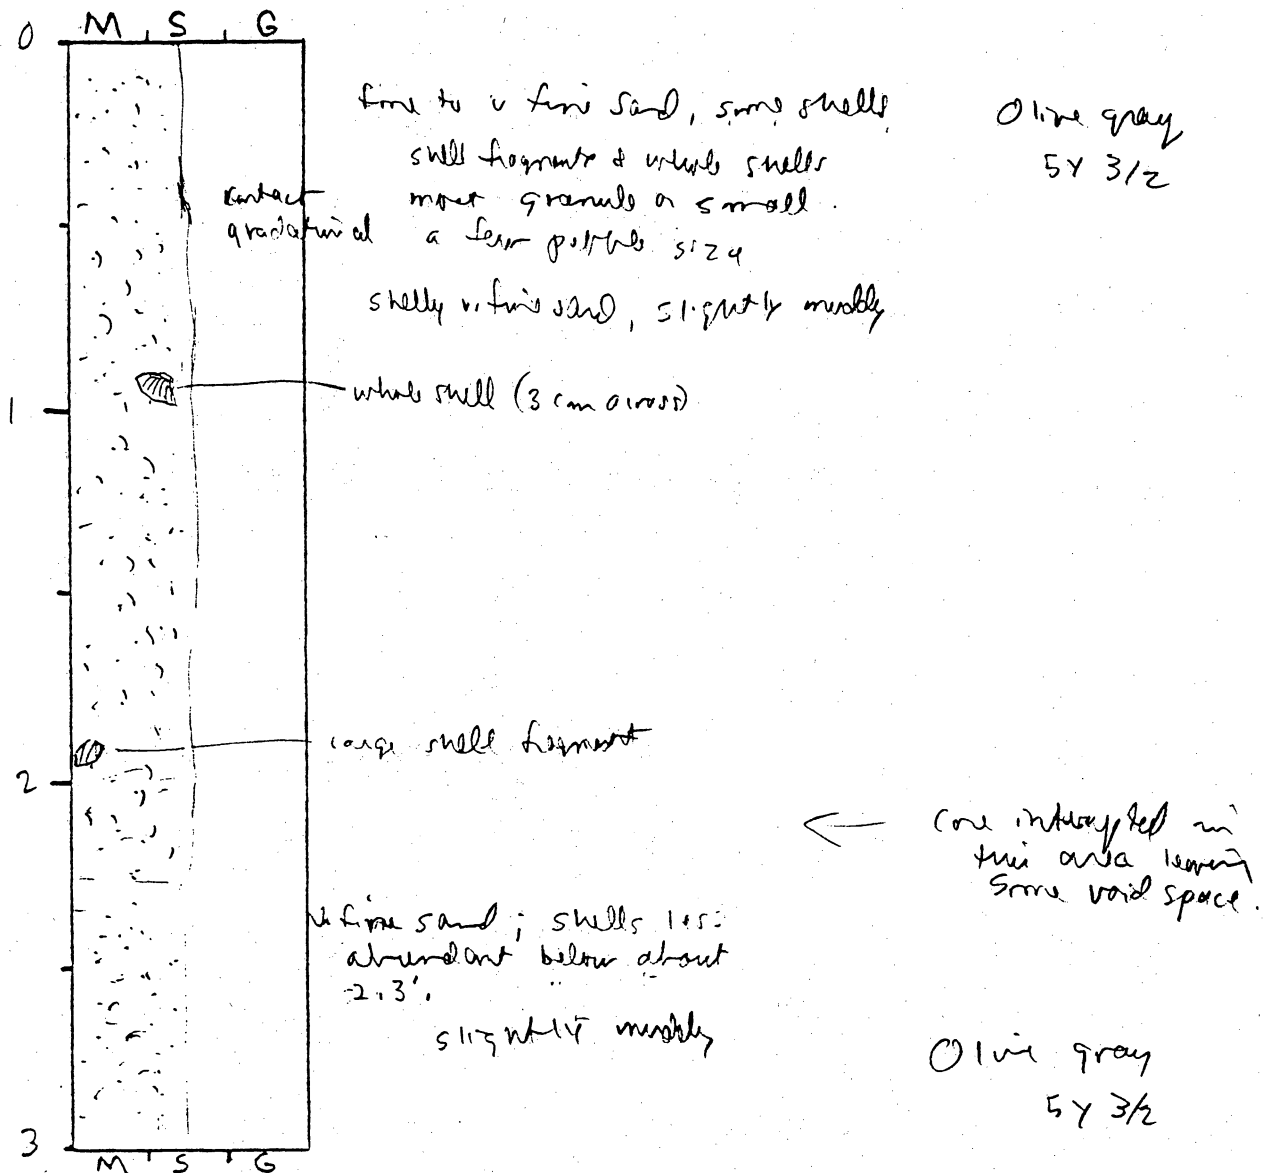 M S G
0
fine to v fine sand, some shells
shell fragments & whole shells
most granule or small.
a few pebble size
Olive gray
5Y 3/2
contact
gradational
shelly v. fine sand, slightly muddy
whole shell (3 cm across)
1
large shell fragment
2
Core interrupted in
this area leaving
some void space.
v. fine sand; shells less
abundant below about
-2.3'.
slightly muddy
Olive gray
5Y 3/2
3
M S G